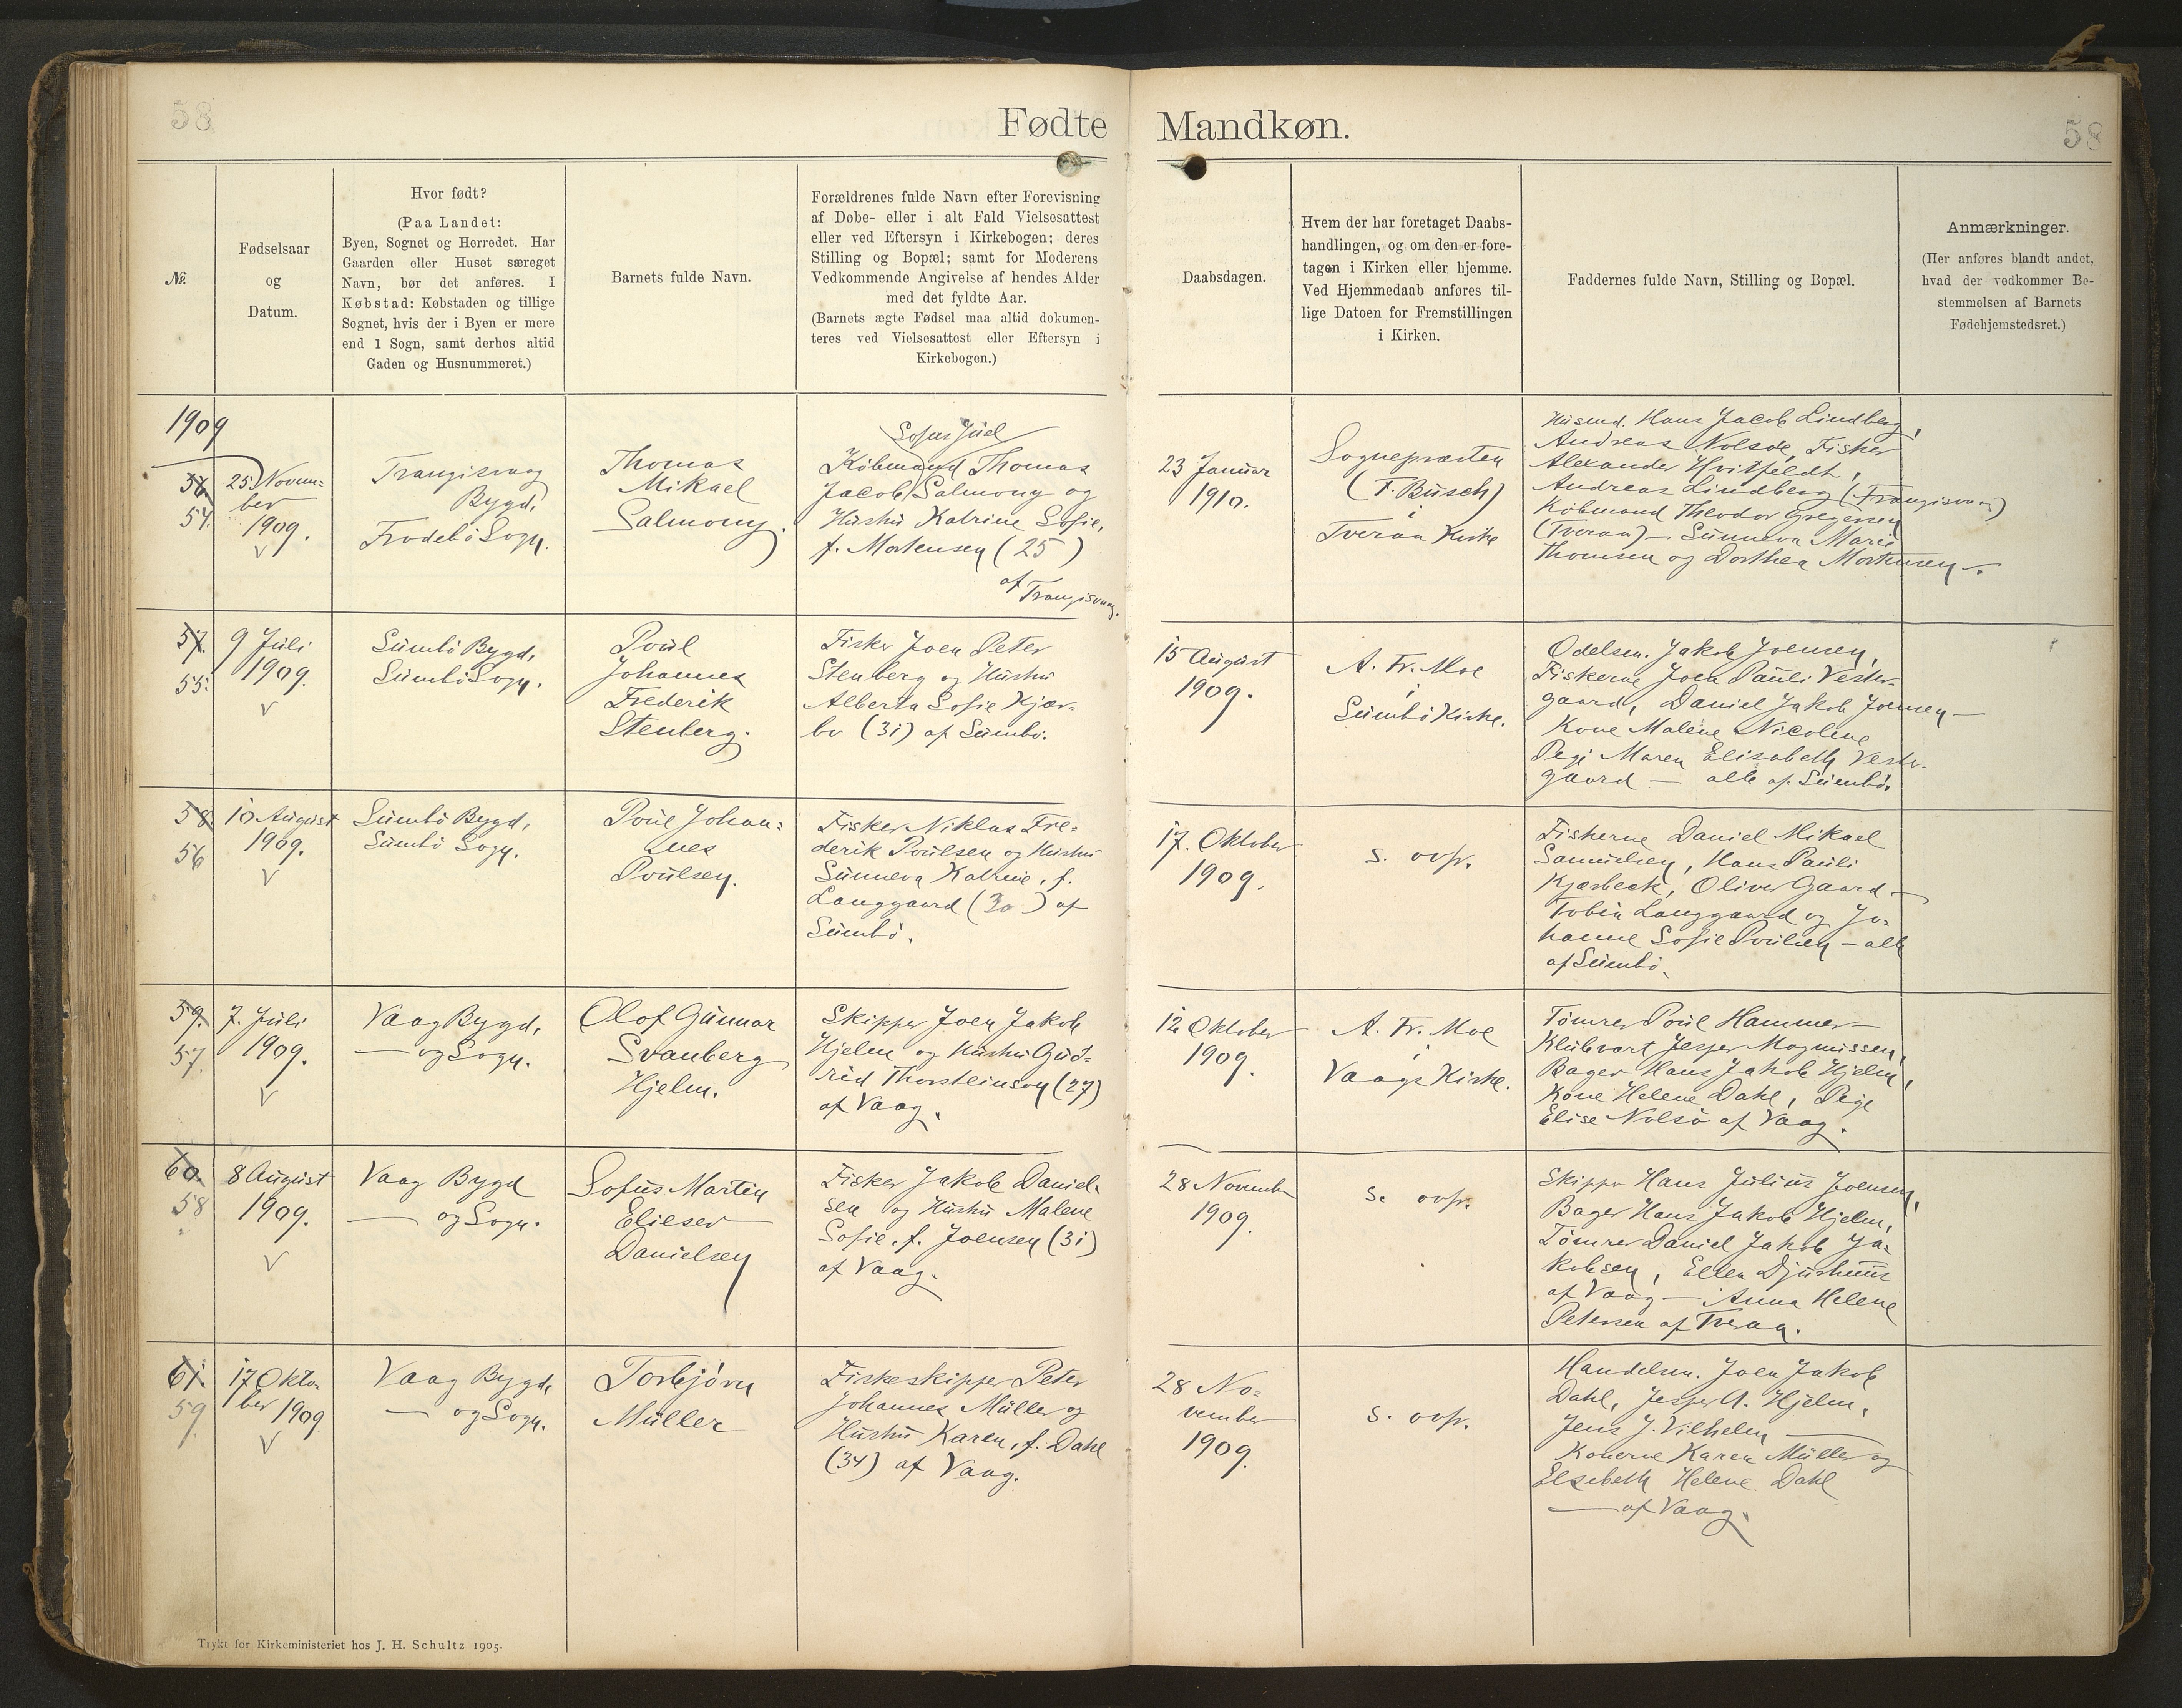 58
Fødte Mandkøn.
58
№.
Fødselsaar
og
Datum.
Hvor født?
(Paa Landet:
Byen, Sognet og Herredet. Har
Gaarden eller Huset særeget
Navn, bør det anføres. I
Købstad: Købstaden og tillige
Sognet, hvis der i Byen er mere
end 1 Sogn, samt derhos altid
Gaden og Husnummeret.)
Barnets fulde Navn.
Forældrenes fulde Navn efter Forevisning
af Døbe- eller i alt Fald Vielsesattest
eller ved Eftersyn i Kirkebogen; deres
Stilling og Bopæl; samt for Moderens
Vedkommende Angivelse af hendes Alder
med det fyldte Aar.
(Barnets ægte Fødsel maa altid dokumen-
teres ved Vielsesattest eller Eftersyn i
Kirkebogen.)
Daabsdagen.
Hvem der har foretaget Daabs-
handlingen, og om den er fore-
tagen i Kirken eller hjemme.
Ved Hjemmedaab anføres til-
lige Datoen for Fremstillingen
i Kirken.
Faddernes fulde Navn, Stilling og Bopæl.
Anmærkninger.
(Her anføres blandt andet,
hvad der vedkommer Be-
stemmelsen af Barnets
Fødehjemstedsret.)
1909
56.
54.
25. Novem-
ber
1909.
Trangisvaag
Bygd,
Frodebö Sogn.
Thomas
Mikael
Salmony.
Sofus Juel
Köbmand Thomas
Jacob Salmony og
Hustru Katrine Sofie,
f. Mortensen (25)
af Trangisvaag.
23 Januar
1910.
Sognepræsten
(F. Busch)
i
Tveraa Kirke
Husmd. Hans Jacob Lindberg,
Andreas Nolsöe, Fisker
Alexander Hvitfeldt,
Andreas Lindberg (Trangisvaag)
Köbmand Theodor Gregersen
(Tveraa) – Sunneva Marie
Thomsen og Dorthea Mortensen –.
57.
55.
9 Juli
1909.
Sumbö Bygd,
Sumbö Sogn.
Poul
Johannes
Frederik
Stenberg.
Fisker Joen Peter
Stenberg og Hustru
Alberta Sofie Kjær-
bo (31) af Sumbö.
15 August
1909.
A. Fr. Moe
i
Sumbö Kirke.
Odelsm. Jakob Joensen,
Fiskerne Joen Pauli Vester-
gaard, Daniel Jakob Joensen –
Kone Malene Nicoline
Pige Maren Elisabeth Vester-
gaard – alle af Sumbö.
58.
56
10 August
1909.
Sumbö Bygd,
Sumbö Sogn.
Poul Johan-
nes
Poulsen.
Fisker Niklas Fre-
derik Poulsen og Hustru
Sunneva Katrine, f.
Langgaard (30) af
Sumbö.
17. Oktober
1909.
s. ovfr.
Fiskerne Daniel Mikael
Samuelsen, Hans Pauli
Kjærbeck, Oliver Gaard –
Tobia Langgaard og Jo-
hanne Sofie Poulsen – alle
af Sumbö.
59.
57.
7. Juli
1909.
Vaag Bygd,
— og Sogn.
Olof Gunnar
Svanberg
Hjelm.
Skipper Joen Jakob
Hjelm og Hustru Gud-
rid Thorsteinson (27)
af Vaag.
12 Oktober
1909.
A. Fr. Moe
i
Vaags Kirke.
Tömrer Poul Hammer –
Klubvært Jesper Magnussen,
Bager Hans Jakob Hjelm,
Kone Helene Dahl, Pige
Elise Nolsö af Vaag.
60.
58
8 August
1909.
Vaag Bygd
— og Sogn.
Sofus Martin
Elieser
Danielsen
Fisker Jakob Daniel-
sen og Hustru Malene
Sofie, f. Joensen (31)
af Vaag.
28 November
1909.
s. ovfr.
Skipper Hans Julius Joensen,
Bager Hans Jakob Hjelm,
Tömrer Daniel Jakob Ja-
kobsen, Ellen Djurhuus
af Vaag – Anna Helene
Petersen af Tveraa.
61.
59.
17 Okto-
ber 1909.
Vaag Bygd,
— og Sogn.
Torbjörn
Müller
Fiskeskipper Peter
Johannes Müller og
Hustru Karen, f. Dahl
(34) af Vaag.
28 No-
vember
1909.
s. ovfr.
Handelsm. Joen Jakob
Dahl, Jesper A. Hjelm,
Jens J. Vilhelm –
Konerne Karen Müller og
Elsebeth Helene Dahl
— af Vaag.
Trykt for Kirkeministeriet hos J. H. Schultz 1905.